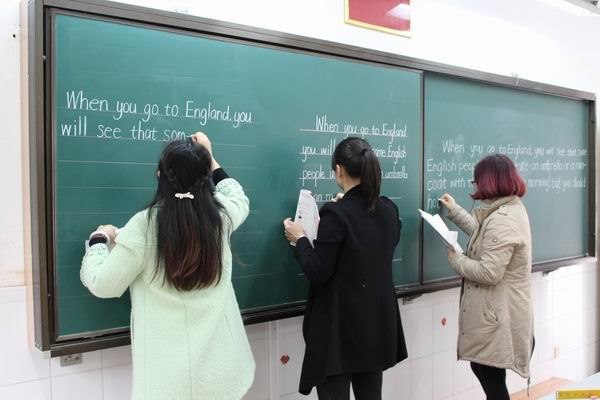 When you go to England, you
will see that som
When you go to England
you will some English
people umbrella
When you go to England, you will see that some
English people an umbrella or a rain-
coat with morning, but you should